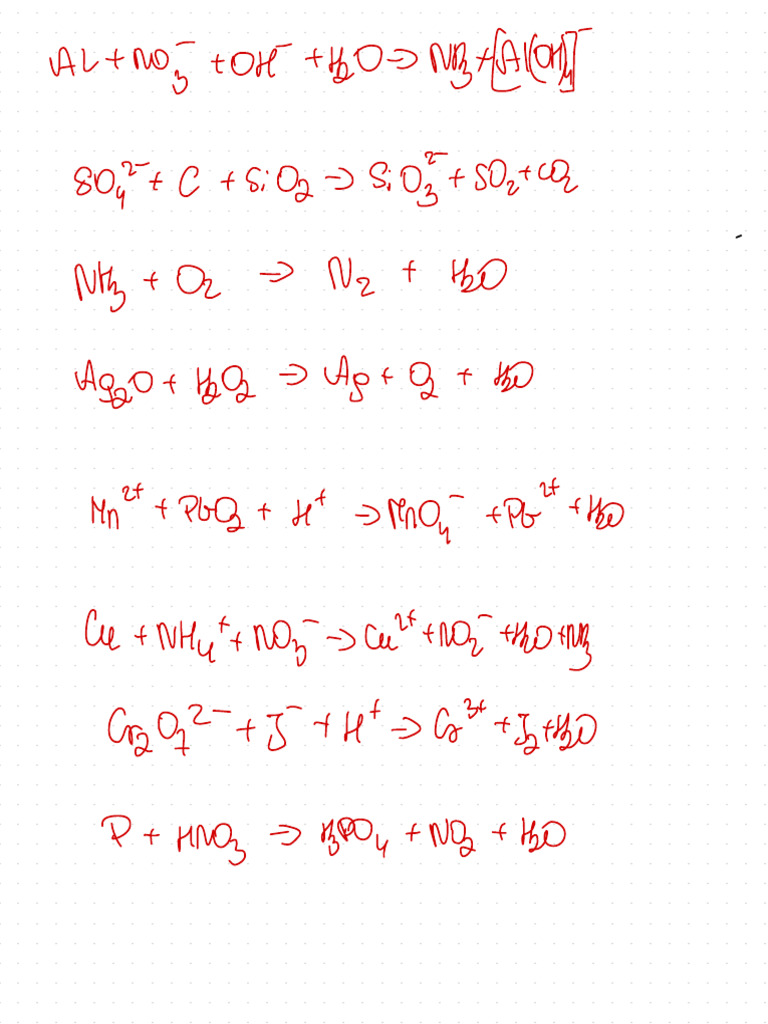 Al + NO₃⁻ + OH⁻ + H₂O → NH₃ + [Al(OH)₄]⁻
SO₄²⁻ + C + SiO₂ → SiO₃²⁻ + SO₂ + CO₂
NH₃ + O₂ → N₂ + H₂O
Ag₂O + H₂O₂ → Ag + O₂ + H₂O
Mn²⁺ + PbO₂ + H⁺ → MnO₄⁻ + Pb²⁺ + H₂O
Cu + NH₄⁺ + NO₃⁻ → Cu²⁺ + NO₂⁻ + H₂O + NH₃
Cr₂O₇²⁻ + J⁻ + H⁺ → Cr³⁺ + J₂ + H₂O
P + HNO₃ → H₃PO₄ + NO₂ + H₂O